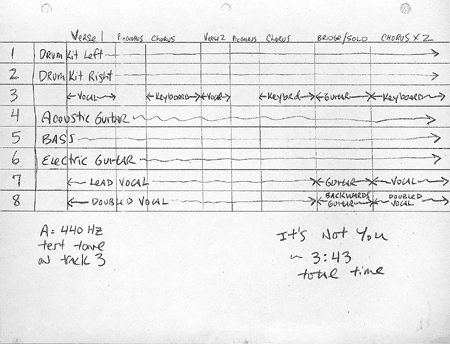 VERSE 1 PRECHORUS CHORUS VERSE 2 PRECHORUS CHORUS BRIDGE/SOLO CHORUS X 2
1 DRUM KIT LEFT
2 DRUM KIT RIGHT
3 VOCAL KEYBOARD VOCAL KEYBRD GUITAR KEYBOARD
4 ACOUSTIC GUITAR
5 BASS
6 ELECTRIC GUITAR
7 LEAD VOCAL GUITAR VOCAL
8 DOUBLED VOCAL BACKWARDS GUITAR DOUBLED VOCAL
A = 440 HZ
test tone
on track 3
IT'S NOT YOU
~ 3:43
total time